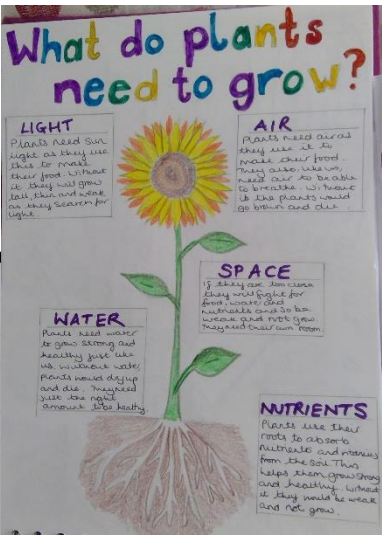 What do plants
need to grow?
LIGHT
Plants need sun
light as they use
this to make
their food. Without
it they will grow
tall, thin and weak
as they search for
light.
AIR
Plants need air as
they use it to
make their food.
They also, like us,
need air to be able
to breathe. Without
it the plants would
go brown and die.
SPACE
If they are too close
they will fight for
food, water and
nutrients and so be
weak and not grow.
They need their own room.
WATER
Plants need water
to grow strong and
healthy just like
us. Without water
plants would dry up
and die. They need
just the right
amount to be healthy.
NUTRIENTS
Plants use their
roots to absorb
nutrients and
from the soil. This
helps them grow strong
and healthy. Without
it they would be weak
and not grow.